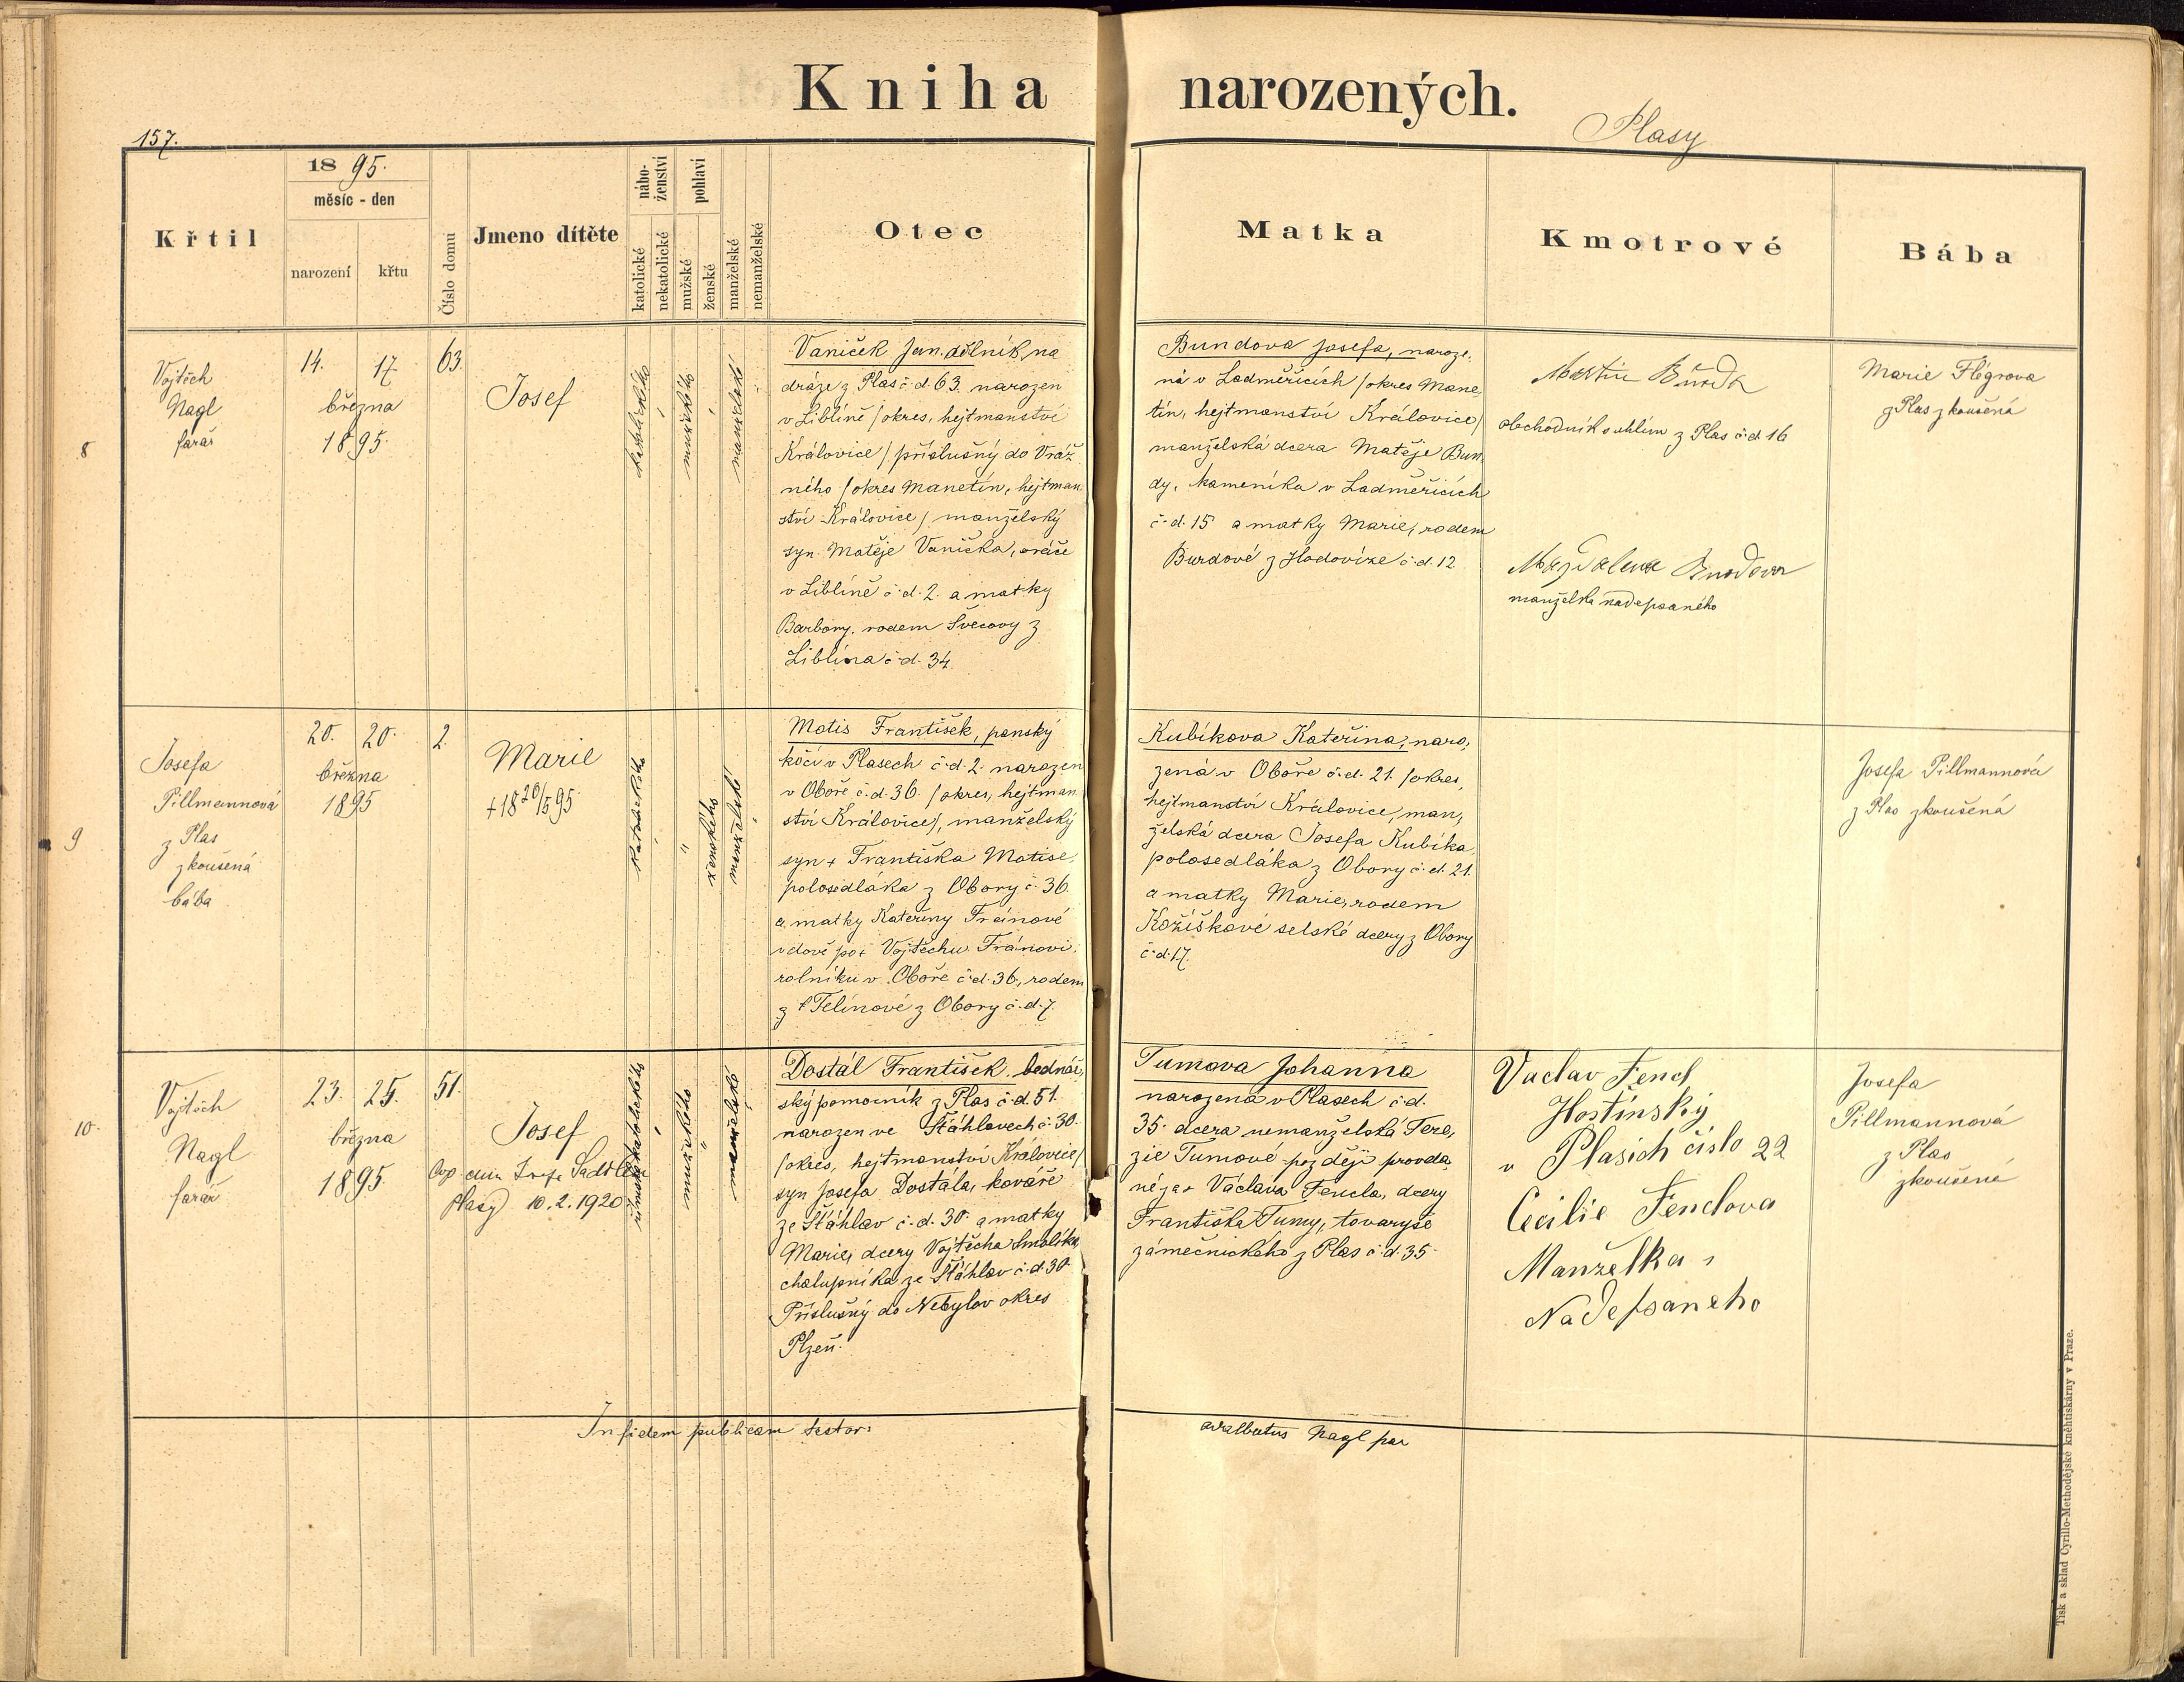 Kniha narozených.
Plasy
157.
Křtil
18 95.
měsíc - den
narození
křtu
Číslo domu
Jmeno dítěte
nábo-
ženství
katolické
nekatolické
pohlaví
mužské
ženské
manželské
nemanželské
Otec
Matka
Kmotrové
Bába
8
Vojtěch
Nagl
farář
14. 17.
března
1895.
63.
Josef
katolického
mužského
manželské
Vaniček Jan. dělník na
dráze z Plas č. d. 63. narozen
v Liblíně /okres, hejtmanství
Královice/ příslušný do Vráž
ného /okres Manetín, hejtman
ství Královice/ manželský
syn Matěje Vanička, oráče
v Liblíně č. d. 2. a matky
Barbory, rodem Švecovy z
Liblína č. d. 34.
Bundova Josefa, naroze,
ná v Ladměřicích /okres Mane,
tín, hejtmanství Královice/
manželská dcera Matěje Bun,
dy, kameníka v Ladměřicích
č. d. 15 a matky Marie, rodem
Burdové z Hodovíze č. d. 12
Martin
obchodník s uhlím z Plas č. d. 16
Magdalena
manželka nadepsaného
Marie Flégrova
z Plas zkoušená
9
Josefa
Pillmannová
z Plas
zkoušená
bába
20. 20.
března
1895
2.
Marie
+18 20/5 95
katolického
"
ženského
manželské
Motis František, panský
kočí v Plasech č. d. 2. narozen
v Oboře č. d. 36. /okres, hejtman
ství Královice/, manželský
syn + Františka Motise,
polosedláka z Obory č. 36.
a matky Kateřiny Fránové
vdově po + Vojtěchu Fránovi.
rolníku v Oboře č. d. 36., rodem
z Felínové z Obory č. d. 7.
Kubíkova Kateřina, naro,
zená v Oboře č. d. 21. /okres,
hejtmanství Královice, man,
želská dcera Josefa Kubíka,
polosedláka z Obory č. d. 21.
a matky Marie, rodem
Kožíškové selské dcery z Obory
č. d. 17.
Josefa Pillmannová
z Plas zkoušená
10.
Vojtěch
Nagl
farář
23. 25.
března
1895
51.
Josef
Cop. cum
Plasy 10. 2. 1920
římskokatolického
mužského
manželské
Dostál František, bednář,
ský pomocník z Plas č. d. 51.
narozen ve Šťáhlavech č. 30.
/okres, hejtmanství Královice/
syn Josefa Dostála, kováře
ze Šťáhlav č. d. 30. a matky
Marie, dcery Vojtěcha Smolíka,
chalupníka ze Šťáhlav č. d. 30.
Příslušný do Nebylov okres
Plzeň.
Tumova Johanna
narozená v Plasech č. d.
35. dcera nemanželská Tere,
zie Tumové později provda,
né za + Václava Fencla, dcery
Františka Tumy, tovaryše
zámečnického z Plas č. d. 35.
Vaclav Fencl
Hostínský
v Plasích číslo 22
Cecilie Fenclova
Manželka
Nadepsaneho
Josefa
Pillmannová
z Plas
zkoušená
In fidem publicam testor:
Adalbertus Nagl par
Tisk a sklad Cyrillo-Methodějské kněhtiskárny v Praze.